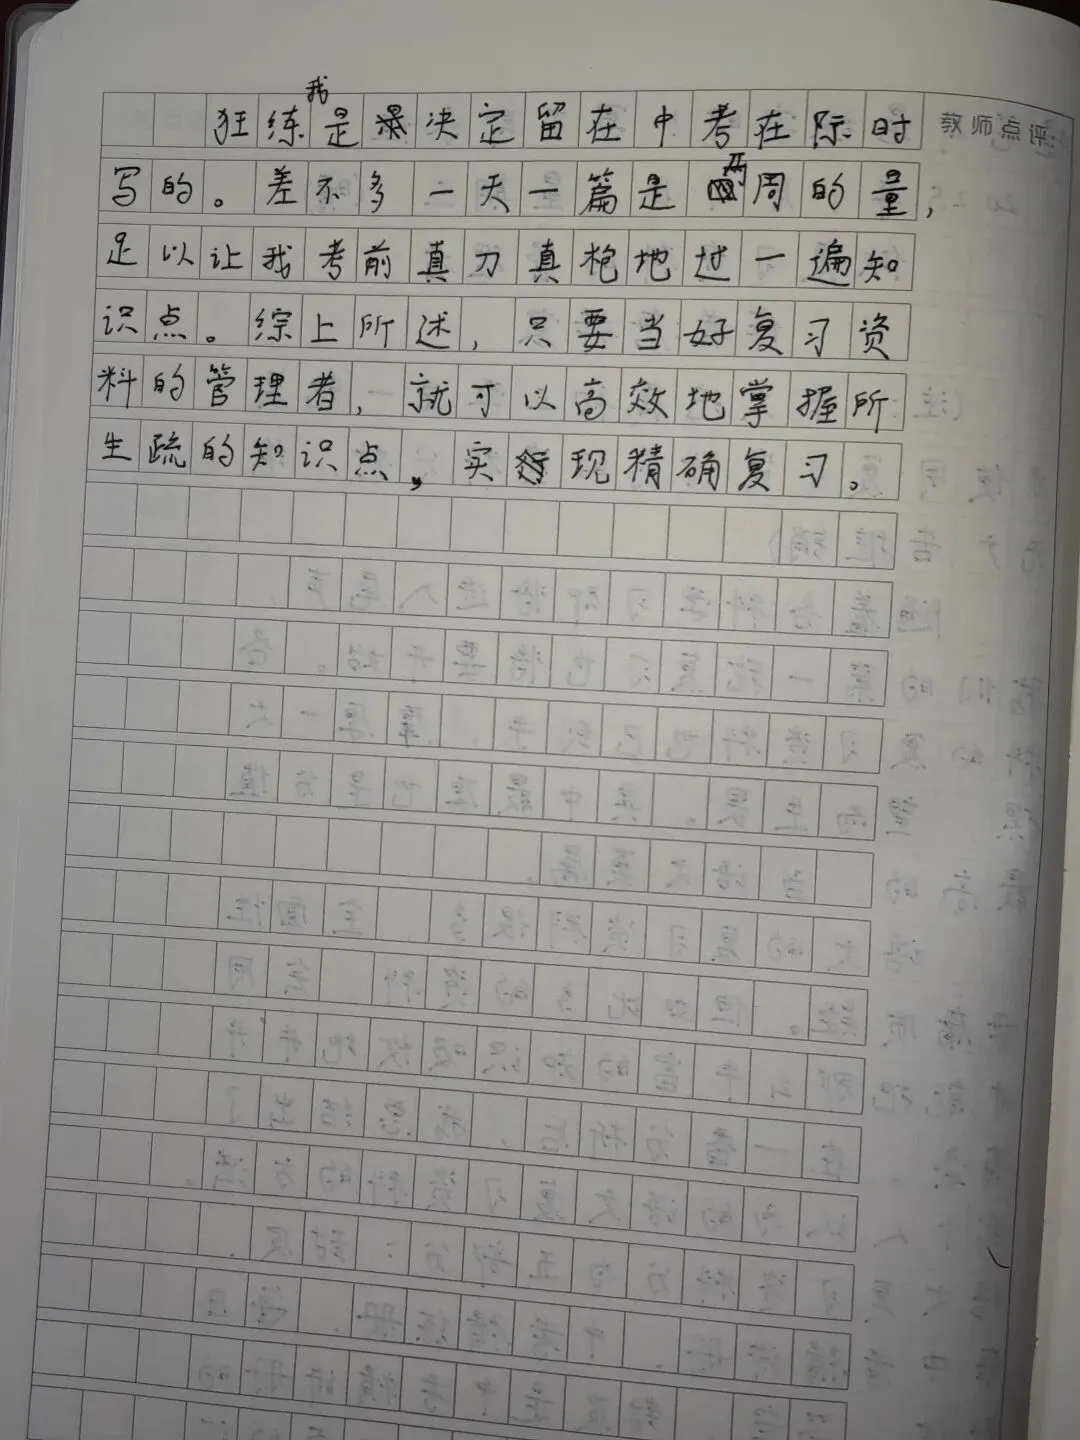 狂练是我决定留在中考在际时 教师点评:
写的。差不多一天一篇是两周的量,
足以让我考前真刀真枪地过一遍知
识点。综上所述,只要当好复习资
料的管理者,就可以高效地掌握所
生疏的知识点,实现精确复习。